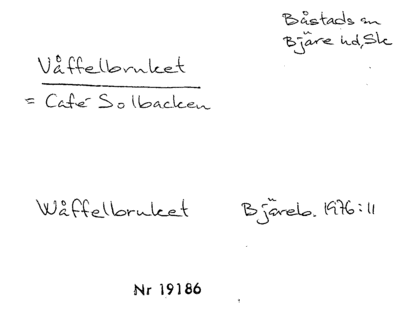 Båstads sn
Bjäre hd, Sk
Våffelbruket
= Café Solbacken
Wåffelbruket Bjäreb. 1976:11
Nr 19186